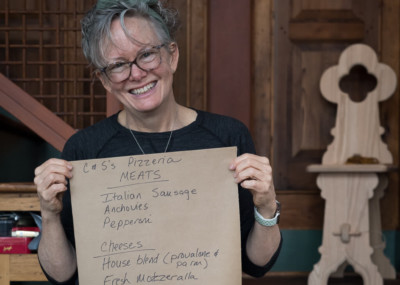 C & S's Pizzeria
MEATS
Italian Sausage
Anchovies
Pepperoni
Cheeses
House blend (provalone &
parm)
Fresh Motzeralla